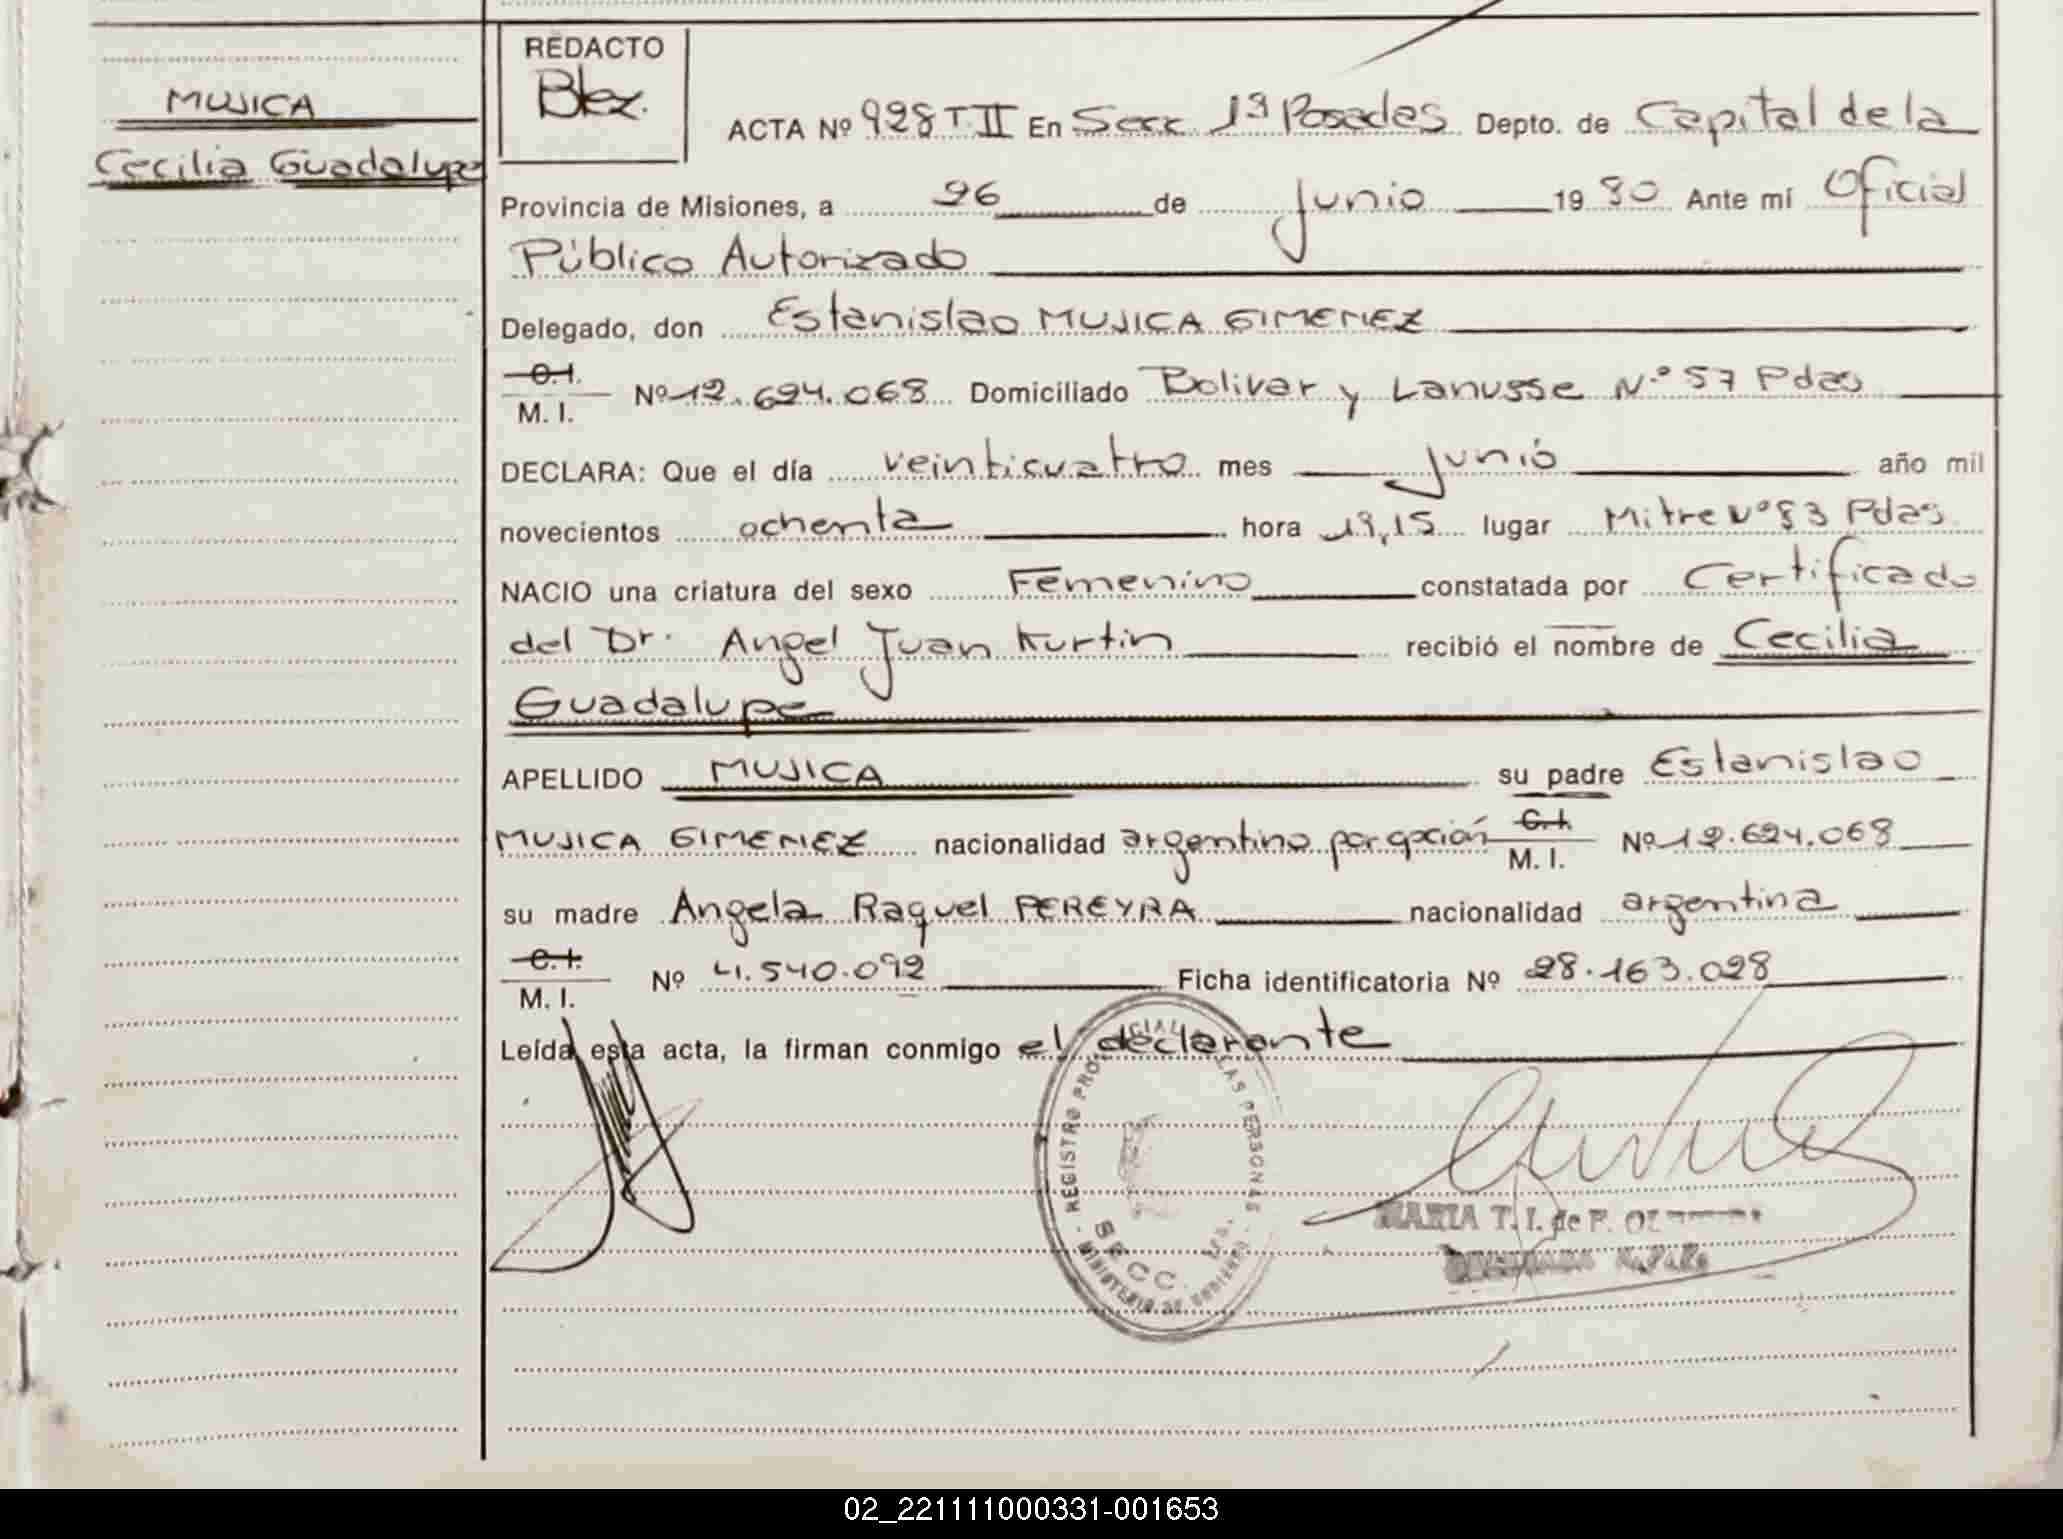 REDACTO
MUJICA
Blez.
Cecilia Guadalupe
ACTA Nº 928 T.II En Secc 1ª Posadas Depto. de Capital de la
Provincia de Misiones, a 26 de Junio 1980 Ante mí Oficial
Público Autorizado
Delegado, don Estanislao MUJICA GIMENEZ
C.I.
M. I. Nº 12.624.068 Domiciliado Bolivar y Lanusse N.º 57 Pdas
DECLARA: Que el día veinticuatro mes Junio año mil
novecientos ochenta hora 19,15 lugar Mitre Nº 83 Pdas
NACIO una criatura del sexo Femenino constatada por Certificado
del Dr. Angel Juan Kurtin recibió el nombre de Cecilia
Guadalupe
APELLIDO MUJICA su padre Estanislao
MUJICA GIMENEZ nacionalidad argentino por opción C.I. M. I. Nº 12.624.068
su madre Angela Raquel PEREYRA nacionalidad argentina
C.I.
M. I. Nº 4.540.092 Ficha identificatoria Nº 28.163.028
Leída esta acta, la firman conmigo el declarante
REGISTRO PROVINCIAL DE LAS PERSONAS
SECC.
MINISTERIO DE GOBIERNO
MARIA T. I. de F.
02_221111000331-001653